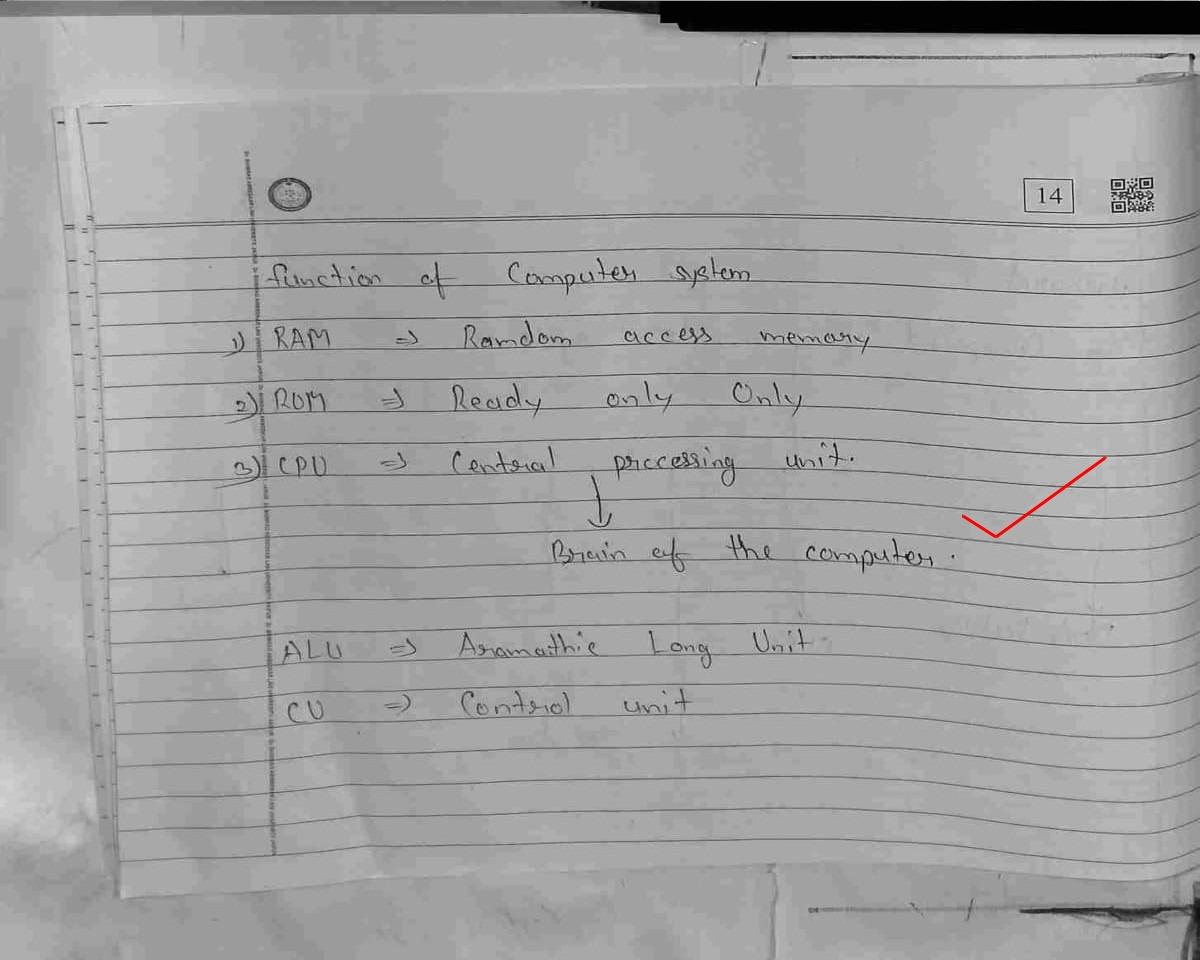 14
function of Computer system
1) RAM => Random access memory
2) ROM => Ready only Only
3) CPU => Central prccessing unit.
↓
Brain of the computer.
ALU => Aramathic Long Unit
CU => Control unit